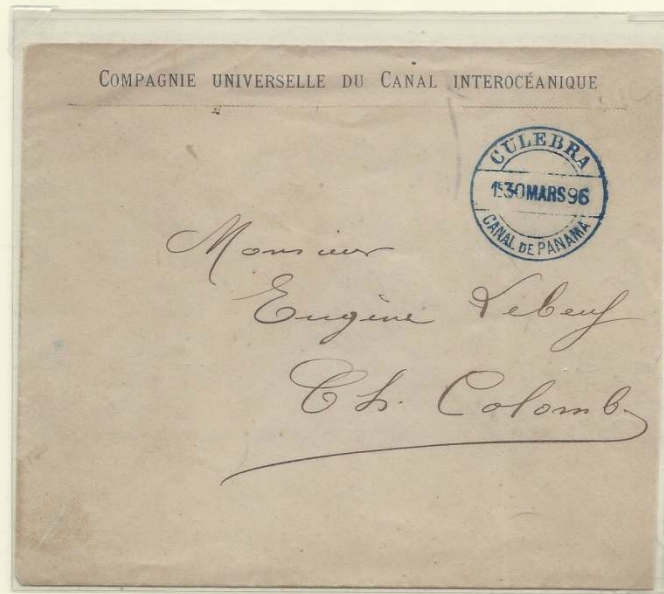 COMPAGNIE UNIVERSELLE DU CANAL INTEROCÉANIQUE
CULEBRA
1E30MARS96
CANAL DE PANAMA
Monsieur
Eugène Lebeuf
Ch. Colomb